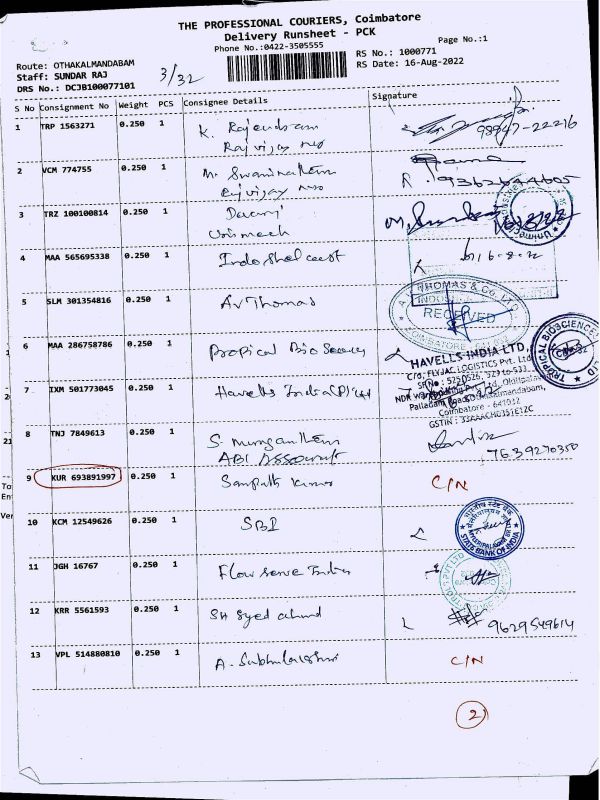 THE PROFESSIONAL COURIERS, Coimbatore
Delivery Runsheet - PCK
Phone No.:0422-3505555
Page No.:1
Route: OTHAKALMANDABAM
Staff: SUNDAR RAJ
DRS No.: DCJB100077101
3/32
RS No.: 1000771
RS Date: 16-Aug-2022
S No Consignment No Weight PCS Consignee Details Signature
1 TRP 1563271 0.250 1 K. Rajendran
Raj vijay
98947-22216
2 VCM 774755 0.250 1 M. Swaminathan
3 TRZ 100100814 0.250 1
4 MAA 565695338 0.250 1 Indo Shell cast
5 SLM 301354816 0.250 1 AV Thomas
A.V. THOMAS & CO. LTD
RECEIVED
COIMBATORE
6 MAA 286758786 0.250 1 Tropical Bio
TROPICAL BIOSCIENCES
HAVELLS INDIA LTD,
C/o. FLYJAC LOGISTICS Pvt. Ltd
7 IXM 501773045 0.250 1 Havells India (P) Ltd
Coimbatore - 641032
GSTIN : 33AAACH0351E1ZC
8 TNJ 7849613 0.250 1 S. Muruganathan
7639270350
9 KUR 693891997 0.250 1 Sampath Kumar C/N
10 KCM 12549626 0.250 1 SBI
STATE BANK OF INDIA
11 JGH 16767 0.250 1 Flow serve India
12 KRR 5561593 0.250 1 SH Syed ahmd
9629549614
13 VPL 514880810 0.250 1 A. Subhulakshmi C/N
2